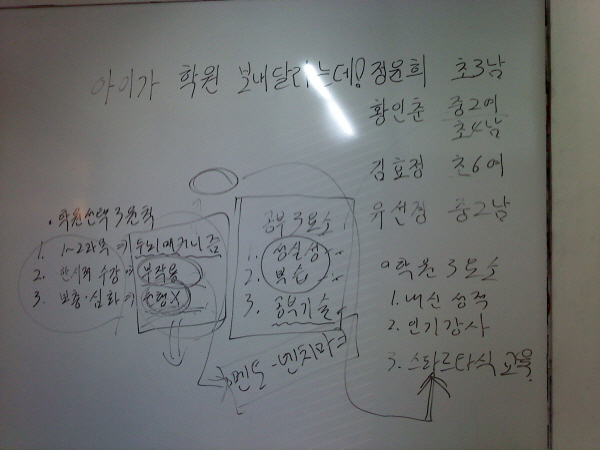 아이가 학원 보내달라는데?
정윤희 초3남
황인춘 중2여
초4남
김효정 초6여
유선정 중2남
•학원선택 3원칙
1. 1~2과목 → 두뇌메커니즘
2. 한시적 수강 → 부작용
3. 보충·심화 → 선행X
공부 3요소
1. 성실성
2. 복습
3. 공부기술
멘토-벤치마크
학원 3요소
1. 내신성적
2. 인기강사
3. 스파르타식 교육